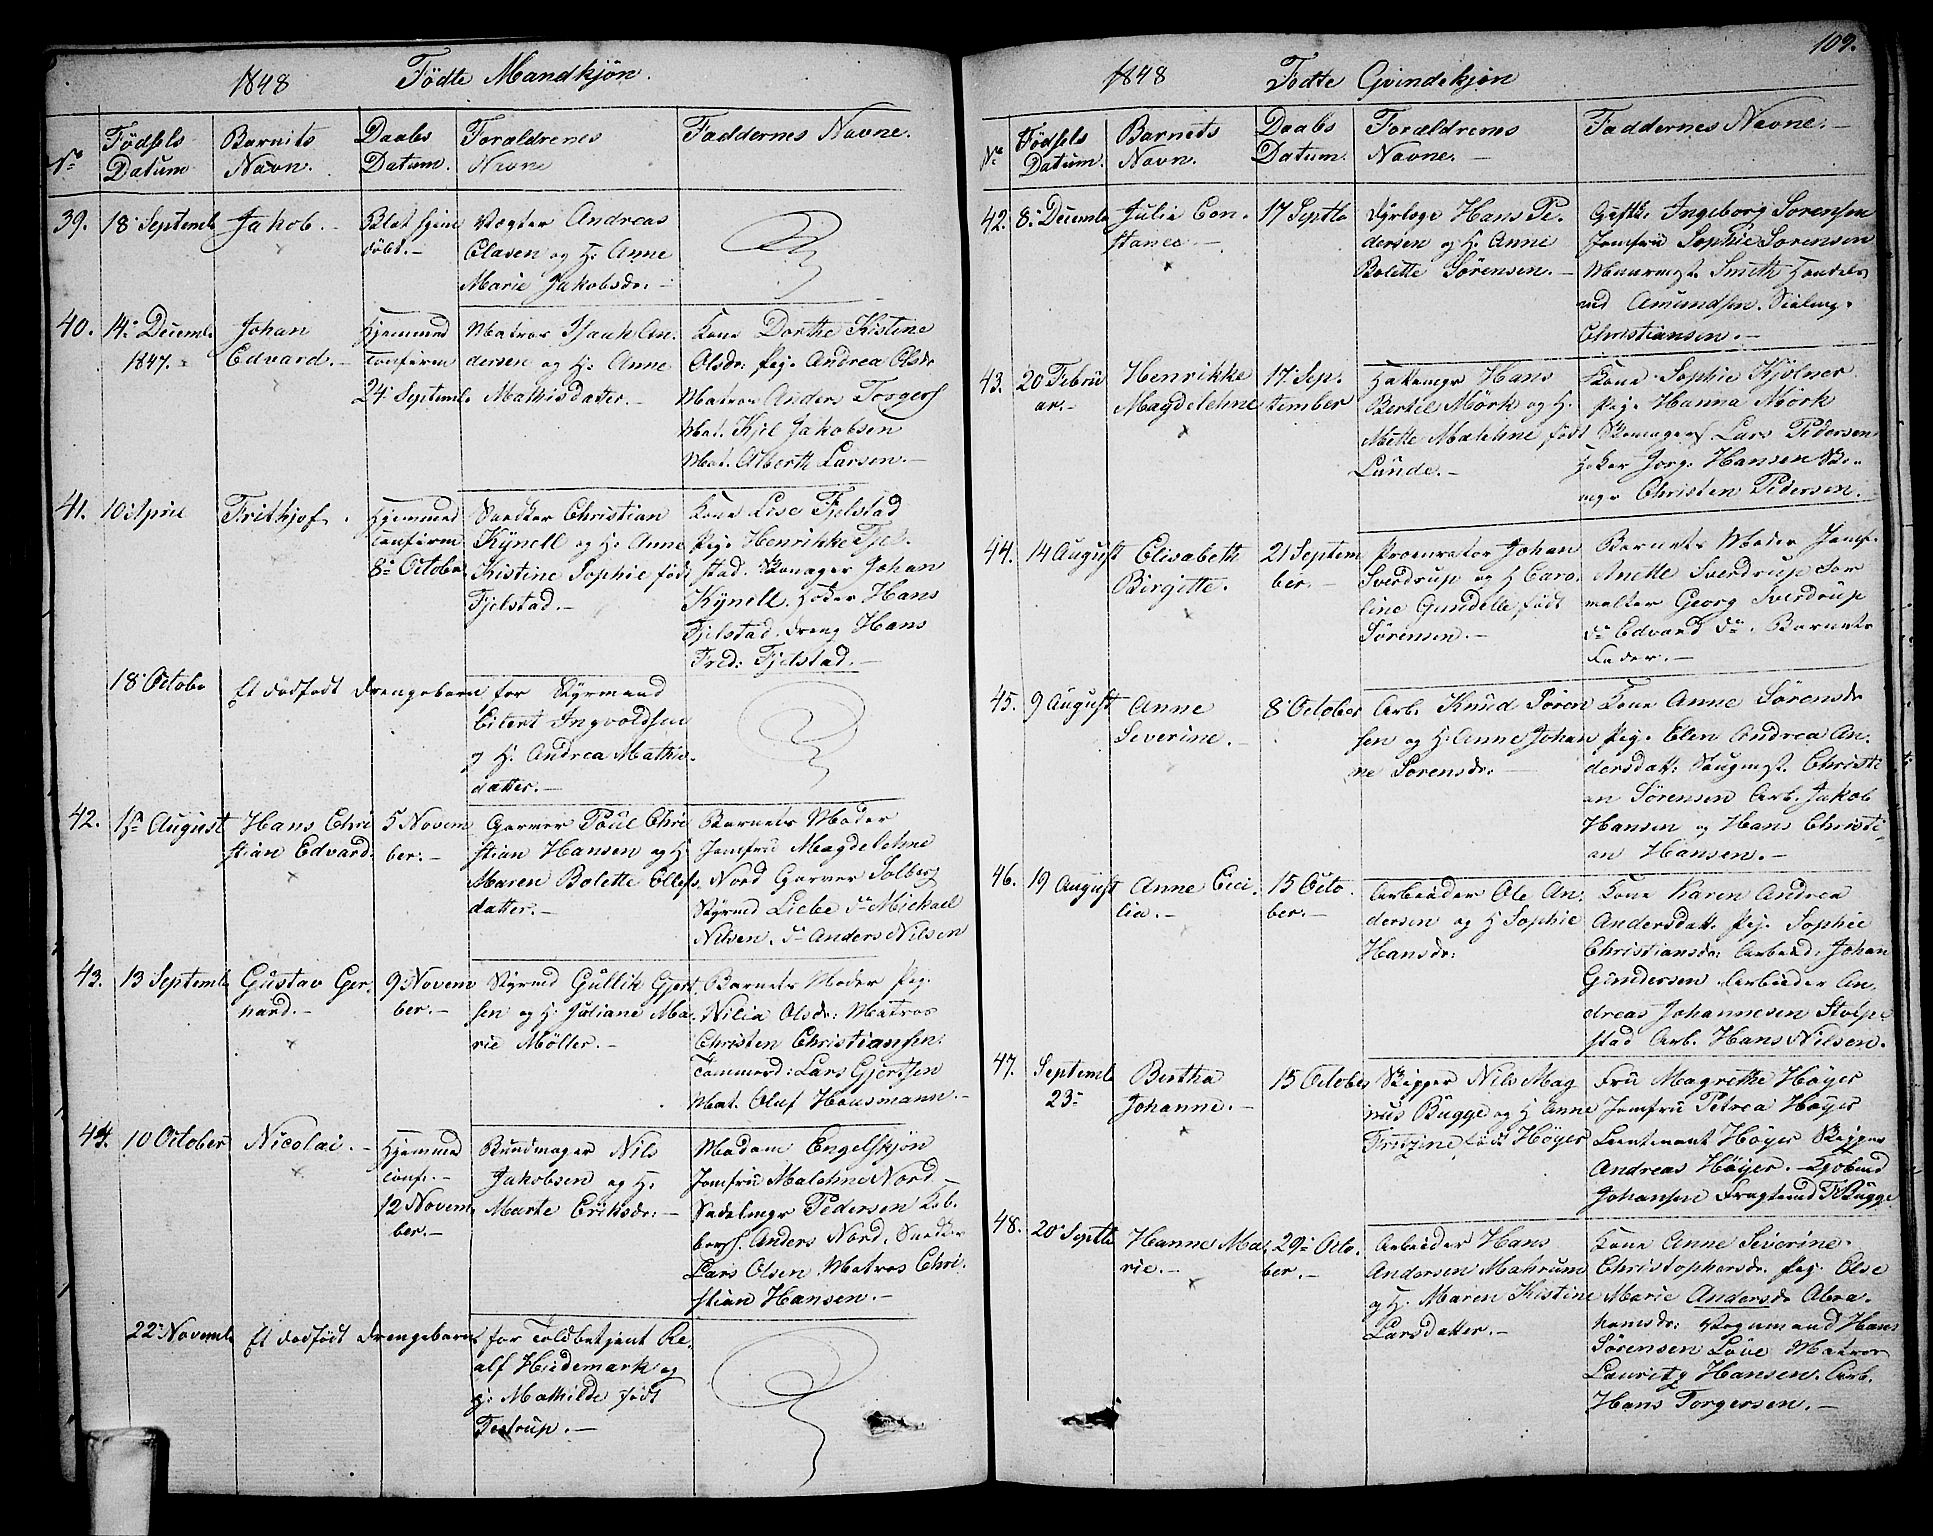 1848 Fødte Mandkjøn.
No Fødsels Datum Barnets Navn. Daabs Datum. Forældrenes Navne Faddernes Navne.
39. 18 Septemb Jakob. – Blot hjemedøbt. –
Vægter Andreas
Clasen og H: Anne
Marie Jakobsdr: –
40. 14. Decemb 1847. Johan Edvard. – Hjemmed confirm 24 Septemb.
Matros Isach An-
dersen og H: Anne
Mathisdatter. –
Kone Dorthe Kistine
Olsdr: Pig. Andrea Olsdr
Matros Anders Torgers
Mat. Kjel Jakobsen
Mat. Alberth Larsen. –
41. 10 April Frithjof. Hjemmed confirm 8 October
Snedker Christian
Kynell og H: Anne
Kistine Sophie født
Fjelstad. –
Kone Lise Fjelstad
Pig. Henrikke Fjel-
stad. Skomager Johan
Kynell. Høker Hans
Fjelstad. Dreng Hans
Fred: Fjelstad. –
18 Octobe Et dødfødt Drengebarn for Styrmand
Eilert Ingvoldsen
og H. Andrea Mathis-
datter. –
42. 1ste August Hans Christian Edvard. 5 November: –
Garver Poul Chri
stian Hansen og H.
Maren Bolette Ellefs
datter. –
Barnets Moder
Jomfru Magdelehne
Nord Garver Solberg
Styrmd Liebe do Mickael
Nilsen. do Anders Nilsen
43. 13 Septemb Gustav Gernard. – 9 November. –
Styrmd Gullik Gjert
sen og H. Juliane Ma-
rie Møller. –
Barnets Moder Pig.
Nilia Olsdr: Matros
Christen Christiansen:
Tømmermd: Lars Gjertsen
Mat. Oluf Housmann. –
44. 10 October Nicolai. – Hjemmed conf. – 12 November. –
Bundmager Nils
Jakobsen og H.
Marte Eriksdr: –
Madam Engelskjøn
Jomfru Malehne Nord
Sadelmgr Pedersen Kob-
bers. Anders Nord. Snedker
Lars Olsen Matros Chri-
stian Hansen. –
22 Novemb Et dødfødt Drengebarn for Toldbetjent Re-
alf Hiedemark og
H: Mathilde født
Testrup. –
109.
1848 Fødte Qvindekjøn
No Fødsels Datum. Barnets Navn. Daabs Datum. Forældrenes Navne. – Faddernes Navne. –
42. 8 Decemb Julie Constance. – 17 Septb
Dyrlæge Hans Pe-
dersen og H. Anne
Bolette Sørensen. –
Giftk. Ingeborg Sørensen
Jomfru Sophie Sørensen
Muurmgst. Smith Handels
md Amundsen. Seilmg.
Christiansen. –
43. 20 Februar. – Henrikke Magdelehne 17. September
Hattemgr Hans
Bertel Mørk og H.
Mette Malehne født
Lunde. –
Kone Sophie Kjølner
Pig. Hanna Mørk
Skomagers Lars Pedersen
Høker Jørg: Hansen Bø-
mgr Christen Pedersen.
44. 14 August Elisabeth Birgitte. 21 September. –
Procurator Johan
Sverdrup og H Caro-
line Gundelle født
Sørensen. –
Barnets Moder Jomf.
Anette Sverdrup For
valter Georg Sverdrup
do Edvard do. Barnets
Fader. –
45. 9 August Anne Severine. – 8 October
Arb. Knud Søren
sen og H: Anne Johan
ne Sørensdr: –
Kone Anne Sørensdr
Pig. Elen Andrea An-
dersdatt: Skugmgst. Christi
an Sørensen Arb. Jakob
Hansen og Hans Christi-
an Hansen. –
46. 19 August Anne Cecilia. – 15 October. –
Arbeider Ole An-
dersen og H Sophie
Hansdr:
Kone Karen Andrea
Andersdatt. Pig. Sophie
Christiansdr: Arbeid. Johan
Gundersen Arbeider An-
dreas Johannesen Stolpe
stad Arb. Hans Nilsen.
47. Septemb 23 Bertha Johanne. – 15 October
Skipper Nils Mag
nus Bugge og H Anne
Fritzine født Høyer
Fru Magrethe Høyer
Jomfru Petrea Høyer
Lieutenant Høyer Skipper
Andreas Høyer. – Kjøbmd
Johansen Fragtemd F Bugge
48. 20 Septb Hanne Marie. – 29 October. –
Arbeider Hans
Andersen Mahrum
og H. Maren Kistine
Larsdatter. –
Kone Anne Severine
Christophersdr. Pig. Else
Marie Andersdr Abra-
hamsdr: Vognmand Hans
Sørensen Løve Matros
Lauritz Hansen. Arb.
Hans Torgersen. –